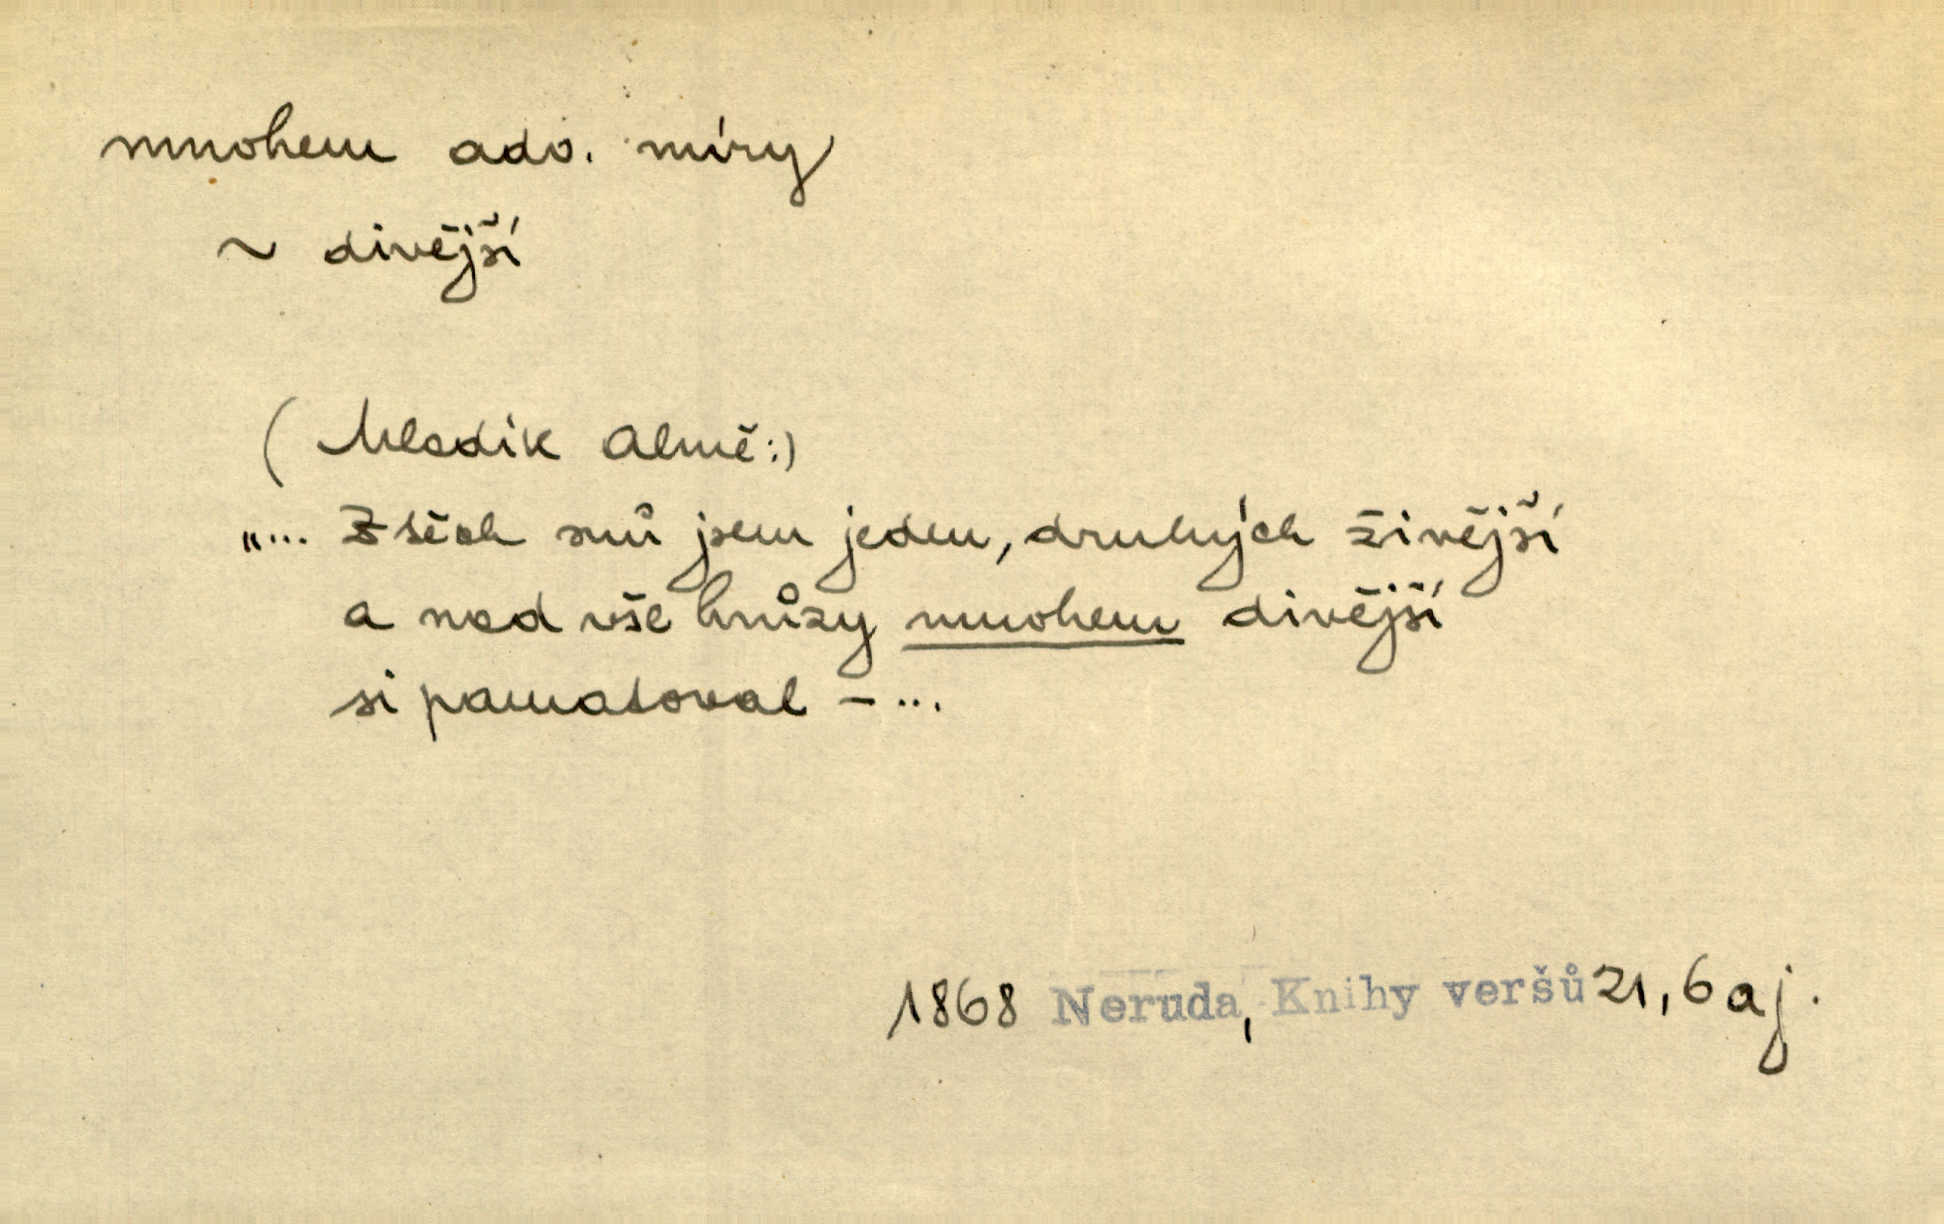 mnohem adv. míry
~ divější
(Mladík Almě:)
„... Z těch snů jsem jeden, druhých živější
a nad vše hrůzy mnohem divější
si pamatoval – ...
1868 Neruda, Knihy veršů 21, 6 aj.